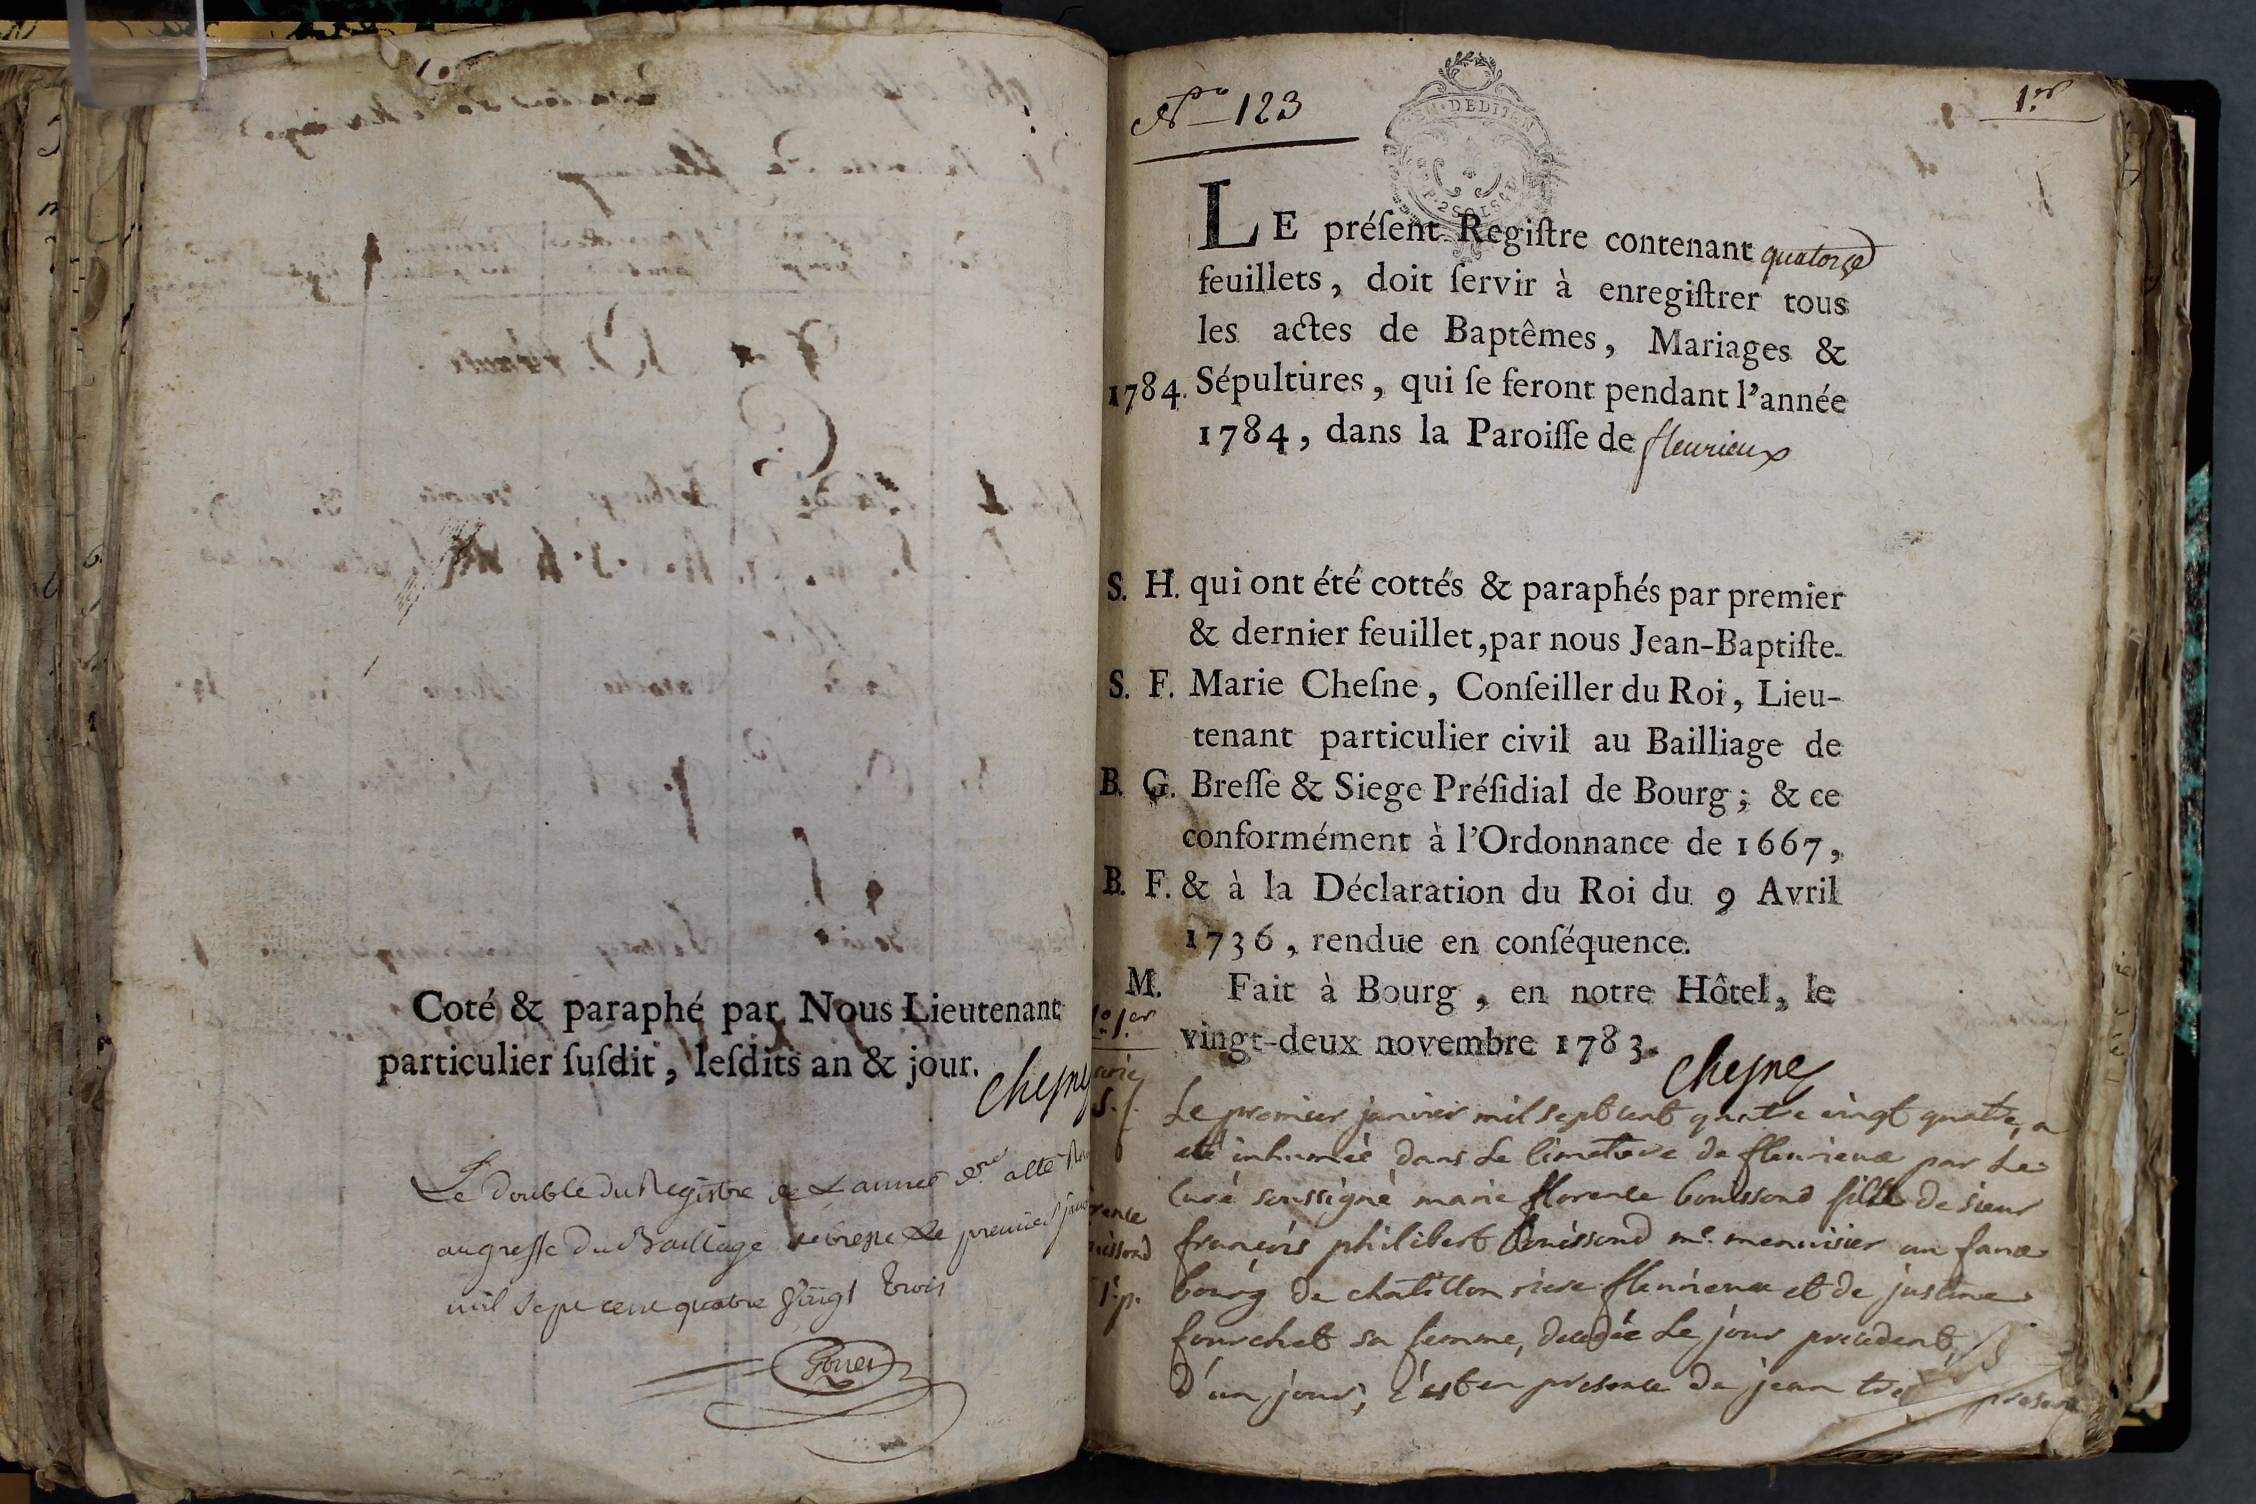 Coté & paraphé par Nous Lieutenant
particulier ſuſdit, leſdits an & jour.
Chesne
Le double du Registre de L'année d.re a été
au greffe du Bailliage de bresse Le premier
mil sept cent quatre vingt trois
N.o 123
1.er
LE préſent Regiſtre contenant quatorze
feuillets, doit ſervir à enregiſtrer tous
les actes de Baptêmes, Mariages &
1784. Sépultures, qui ſe feront pendant l'année
1784, dans la Paroiſſe de fleurieux
S. H. qui ont été cottés & paraphés par premier
& dernier feuillet, par nous Jean-Baptiſte-
S. F. Marie Cheſne, Conſeiller du Roi, Lieu-
tenant particulier civil au Bailliage de
B. G. Breſſe & Siege Préſidial de Bourg; & ce
conformément à l'Ordonnance de 1667,
B. F. & à la Déclaration du Roi du 9 Avril
1736, rendue en conſéquence.
M. Fait à Bourg, en notre Hôtel, le
vingt-deux novembre 1783.
Chesne
Le premier janvier mil sept cent quatre vingt quatre, a
eté inhumée dans Le Cimetiere de fleurieux par Le
Curé soussigné marie florence bouissond fille de sieur
françois philibert Bouissond m.e menuisier au faux
bourg de chatillon riere fleurieux et de justine
fourchet sa femme, decedée Le jour precedent,
d'un jour; c'est en presence de jean